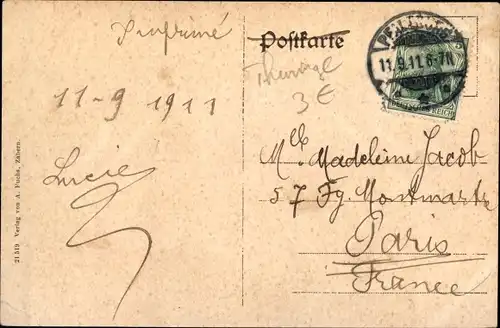 Imprimé
Postkarte
3 €
11-9 1911
11.9.11.6-7N
Lucie
Mlle Madeleine Jacob
57 Fg. Montmartre
Paris
France
21 519 Verlag von A. Fuchs, Zabern.